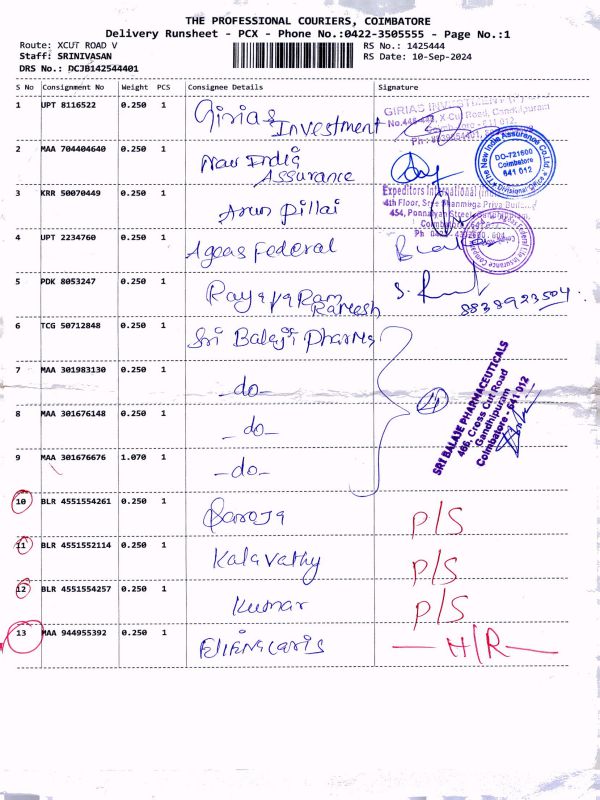 THE PROFESSIONAL COURIERS, COIMBATORE
Delivery Runsheet - PCX - Phone No.:0422-3505555 - Page No.:1
Route: XCUT ROAD V
RS No.: 1425444
Staff: SRINIVASAN
RS Date: 10-Sep-2024
DRS No.: DCJB142544401
S No Consignment No Weight PCS Consignee Details Signature
1 UPT 8116522 0.250 1 Girias Investment
GIRIAS INVESTMENT
X-Cut Road, Gandhipuram
2 MAA 704404640 0.250 1 New India Assurance
The New India Assurance Co.Ltd.
DO-721600
Coimbatore
641 012
Divisional
3 KRR 50070449 0.250 1 Arun Pillai
Expeditors International
4th Floor, Sree Shanmuga Priya
454, Ponnaiyan Street
4 UPT 2234760 0.250 1 Ageas Federal
5 PDK 8053247 0.250 1 Rayapa Ram Ramesh
8838923504
6 TCG 50712848 0.250 1 Sri Balaji Pharma
7 MAA 301983130 0.250 1 -do-
8 MAA 301676148 0.250 1 -do-
4
SRI BALAJE PHARMACEUTICALS
466, Cross Cut Road
Gandhipuram
Coimbatore - 641 012
9 MAA 301676676 1.070 1 -do-
10 BLR 4551554261 0.250 1 Saroja P/S
11 BLR 4551552114 0.250 1 Kalavathy P/S
12 BLR 4551554257 0.250 1 Kumar P/S
13 MAA 944955392 0.250 1 H/R